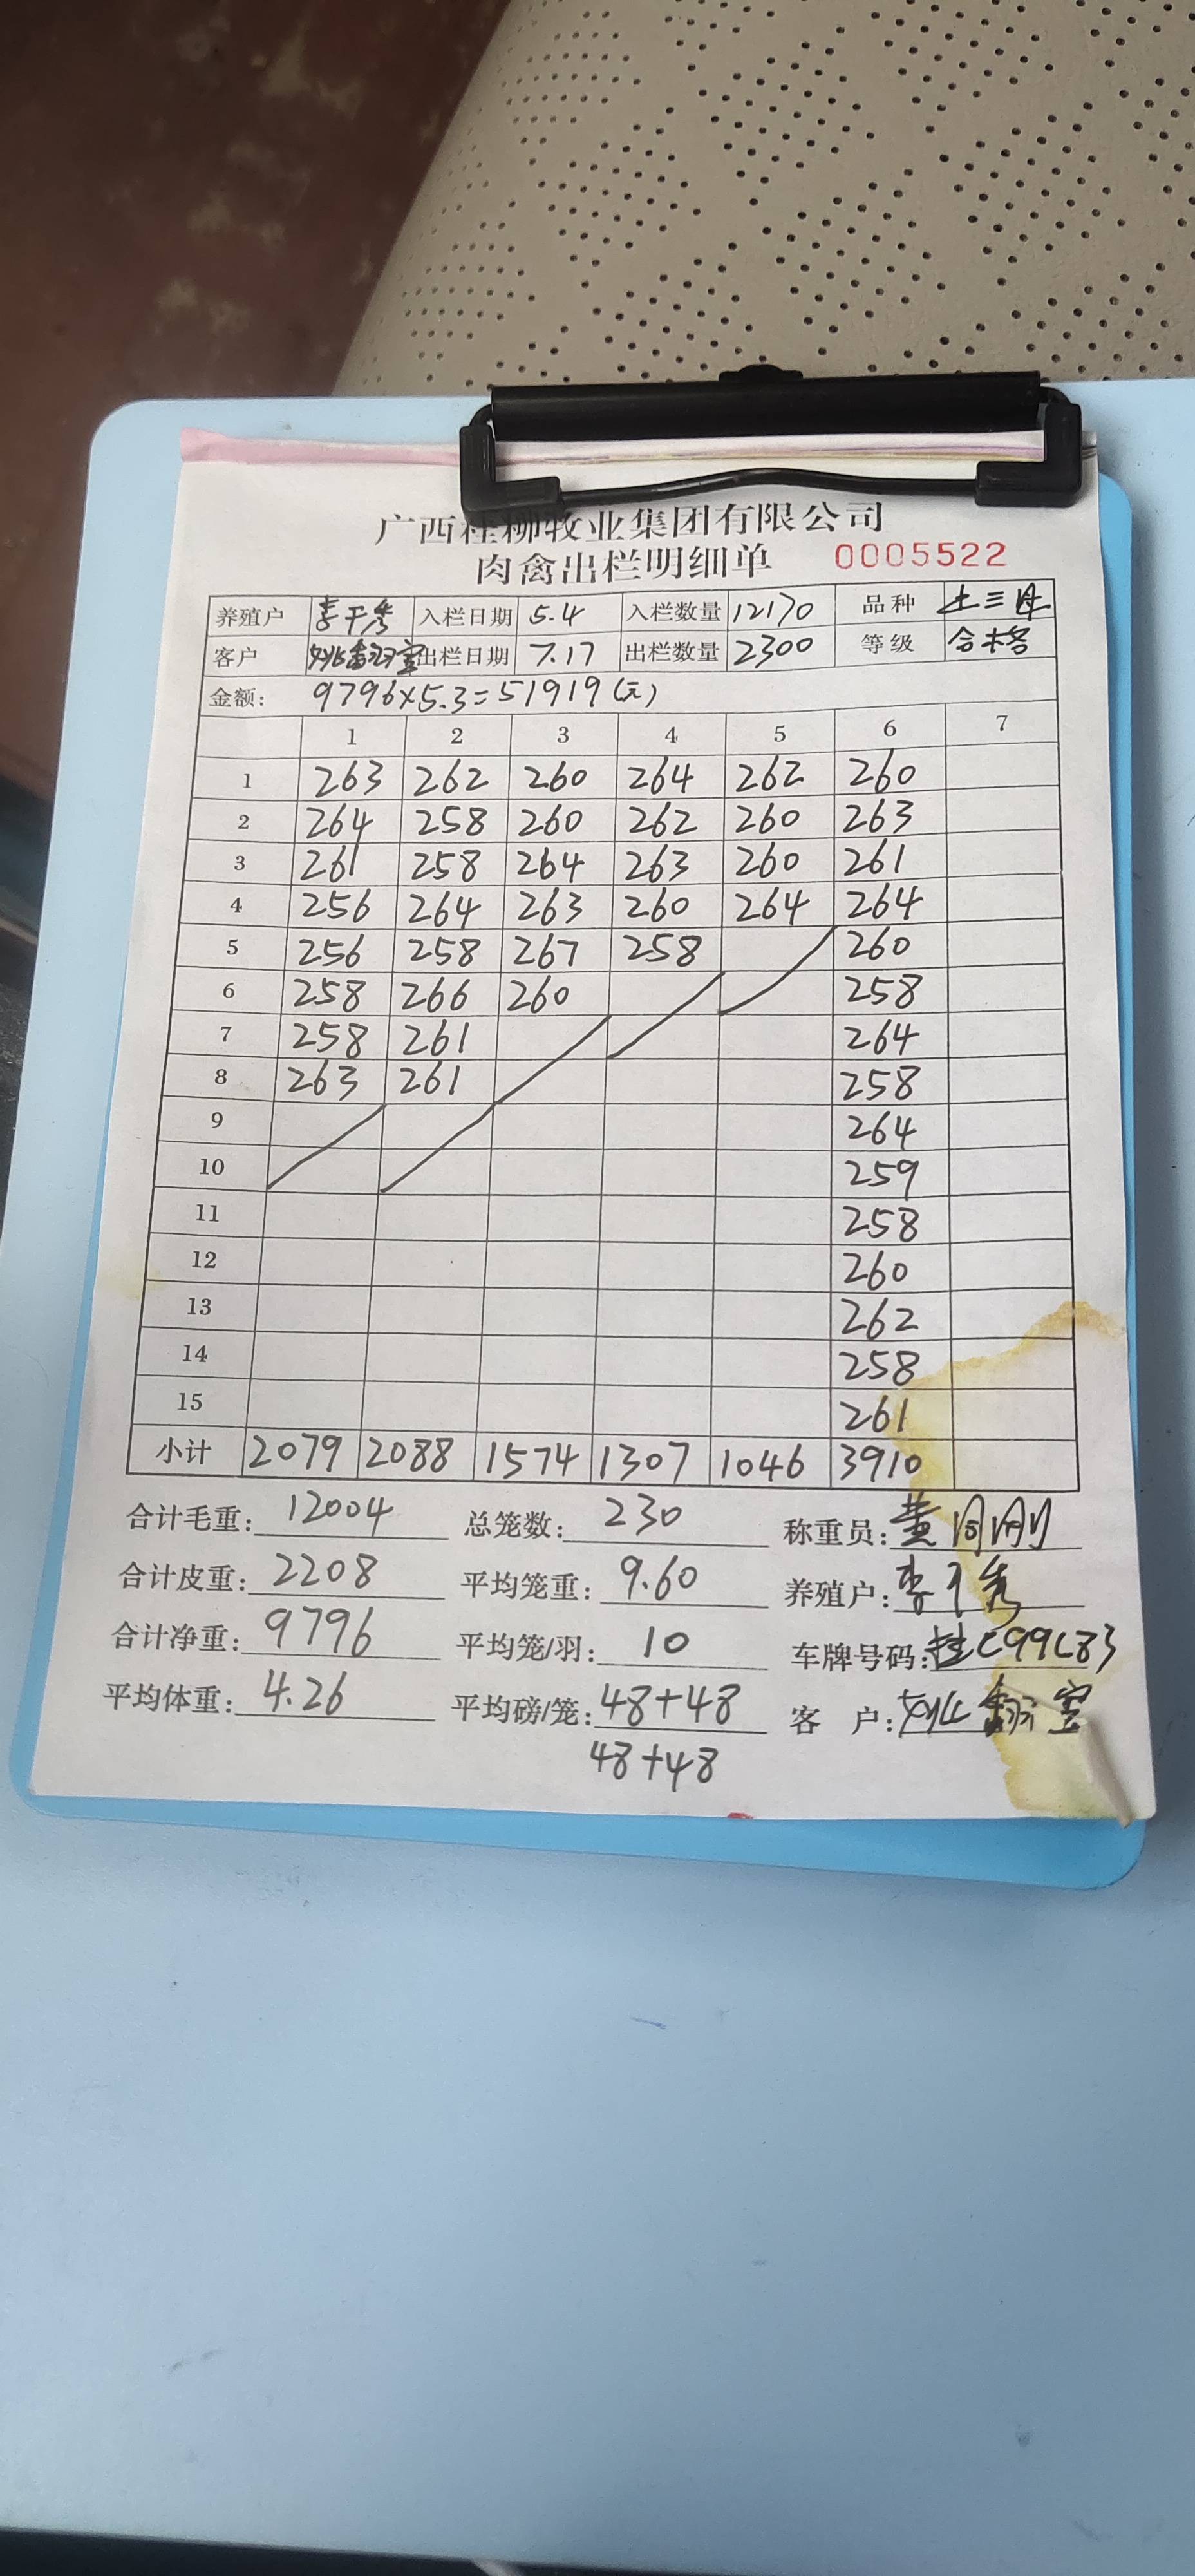 广西桂柳牧业集团有限公司
肉禽出栏明细单 0005522
养殖户 李干秀 入栏日期 5.4 入栏数量 12170 品种 土三阝
客户 出栏日期 7.17 出栏数量 2300 等级 合格
金额: 9796×5.3=51919(元)
1 2 3 4 5 6 7
1 263 262 260 264 262 260
2 264 258 260 262 260 263
3 261 258 264 263 260 261
4 256 264 263 260 264 264
5 256 258 267 258 260
6 258 266 260 258
7 258 261 264
8 263 261 258
9 264
10 259
11 258
12 260
13 262
14 258
15 261
小计 2079 2088 1574 1307 1046 3910
合计毛重: 12004 总笼数: 230 称重员: 黄
合计皮重: 2208 平均笼重: 9.60 养殖户: 李干秀
合计净重: 9796 平均笼/羽: 10 车牌号码: 桂C99C83
平均体重: 4.26 平均磅/笼: 48+48 客 户:
48+48